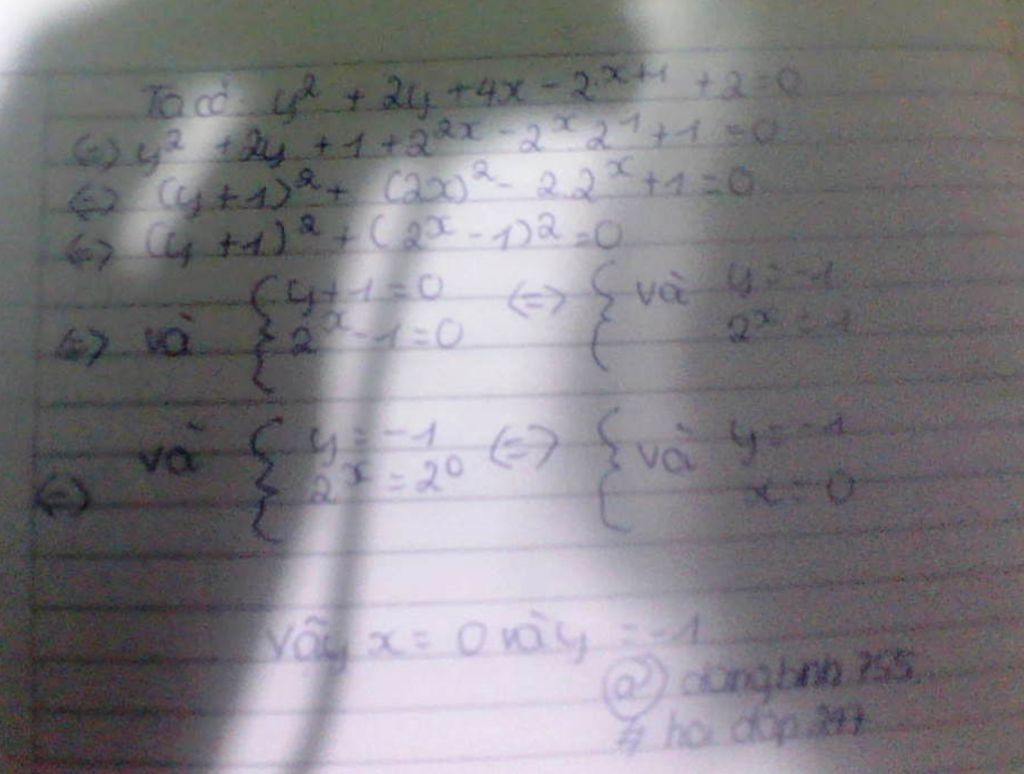 Ta có: y² + 2y + 4x - 2^x+1 + 2 = 0
(=) y² + 2y + 1 + 2^2x - 2^x 2^1 + 1 = 0
(=) (y + 1)² + (2x)² - 2.2^x + 1 = 0
(=) (y + 1)² + (2^x - 1)² = 0
(=) và { y + 1 = 0 (=) { và y = -1
2^x - 1 = 0 2^x = 1
(=) và { y = -1 (=) { và y = -1
2^x = 2^0 x = 0
Vậy x = 0 và y = -1
@ dungbinh 755
# hoi dap 247